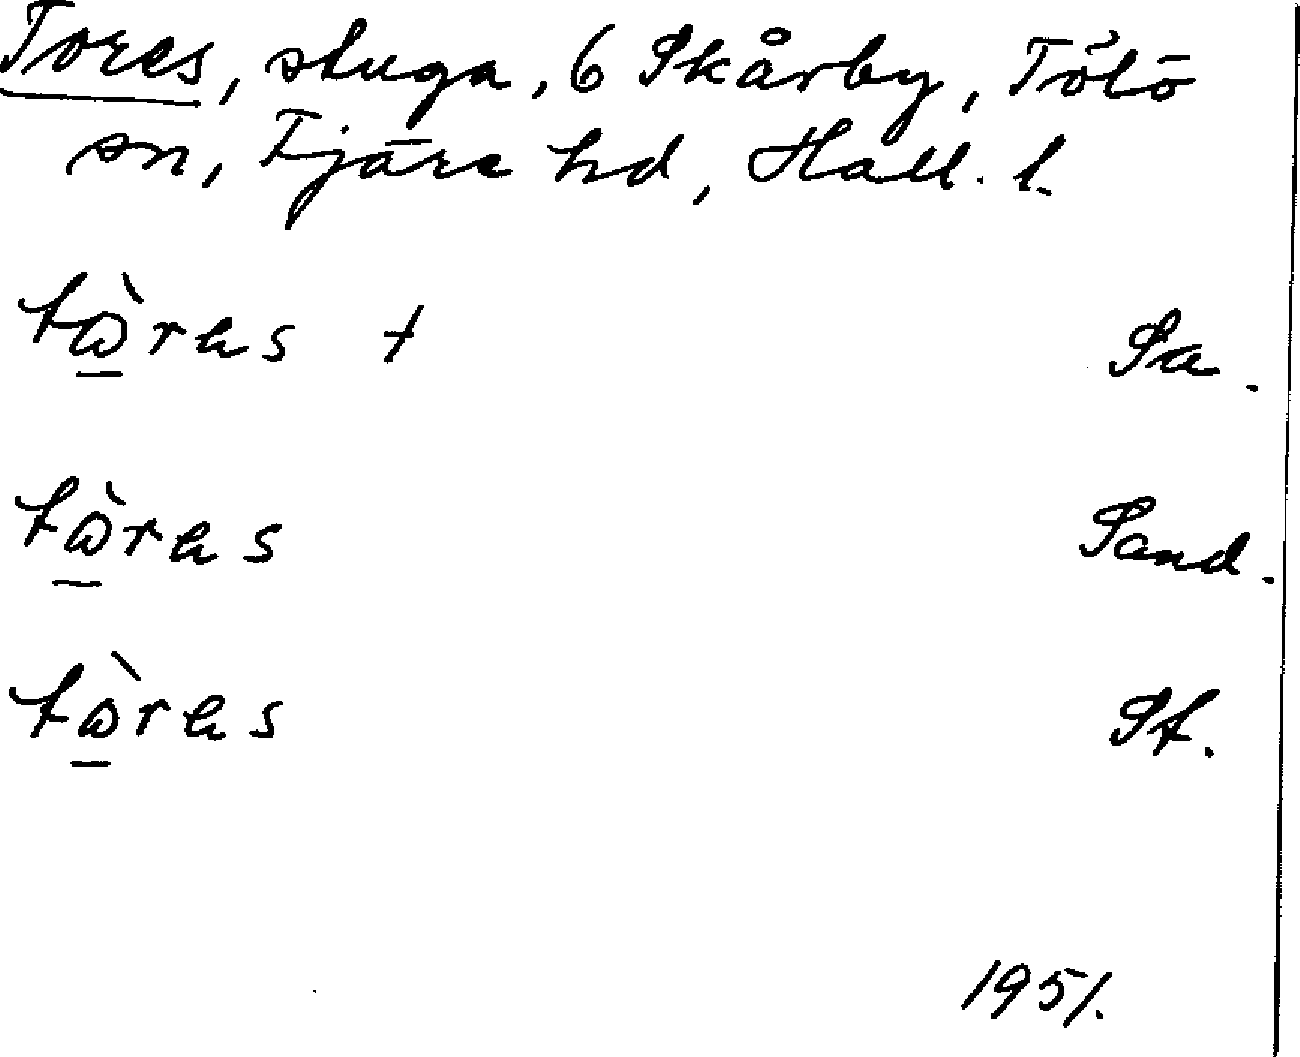 Tores, stuga, 6 Skårby, Tölö
sn, Fjäre hd, Hall. l.
tὼ̱rɐs † Sa.
tὼ̱rɐs Sand.
tὼ̱rɐs St.
1951.